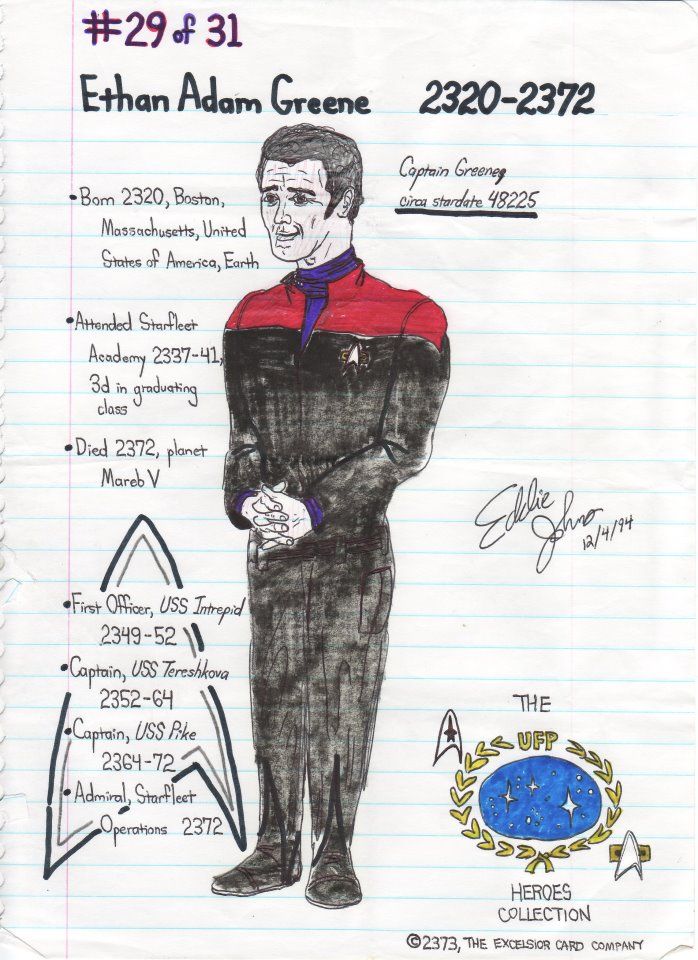 #29 of 31
Ethan Adam Greene 2320-2372
Captain Greene,
circa stardate 48225
• Born 2320, Boston,
Massachusetts, United
States of America, Earth
• Attended Starfleet
Academy 2337-41,
3d in graduating
class
• Died 2372, planet
Mareb V
Eddie
12/4/94
• First Officer, USS Intrepid
2349-52
• Captain, USS Tereshkova
2352-64
• Captain, USS Pike
2364-72
• Admiral, Starfleet
Operations 2372
THE
UFP
HEROES
COLLECTION
©2373, THE EXCELSIOR CARD COMPANY